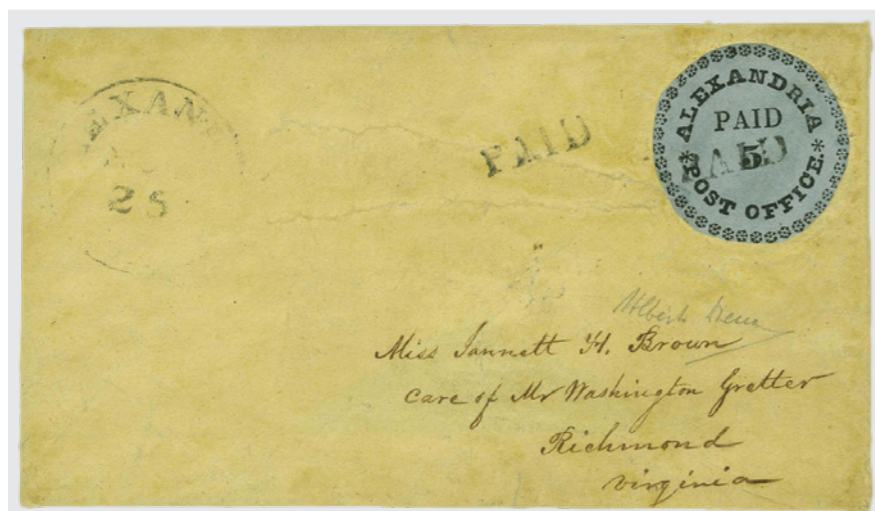 EXAN
25
PAID
ALEXANDRIA
PAID
PAID
5
POST OFFICE.
Miss Jannett H. Brown
care of Mr Washington Gretter
Richmond
virginia